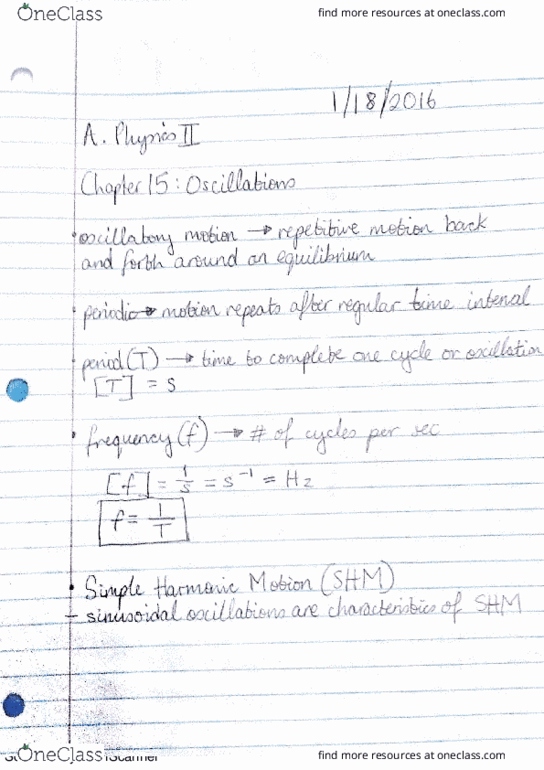 OneClass find more resources at oneclass.com
1/18/2016
A. Physics II
Chapter 15: Oscillations
• oscillatory motion → repetitive motion back
and forth around an equilibrium
• periodic → motion repeats after regular time interval
• period (T) → time to complete one cycle or oscillation
[T] = s
• frequency (f) → # of cycles per sec
[f] = 1/s = s⁻¹ = Hz
f = 1/T
• Simple Harmonic Motion (SHM)
- sinusoidal oscillations are characteristics of SHM
OneClass find more resources at oneclass.com